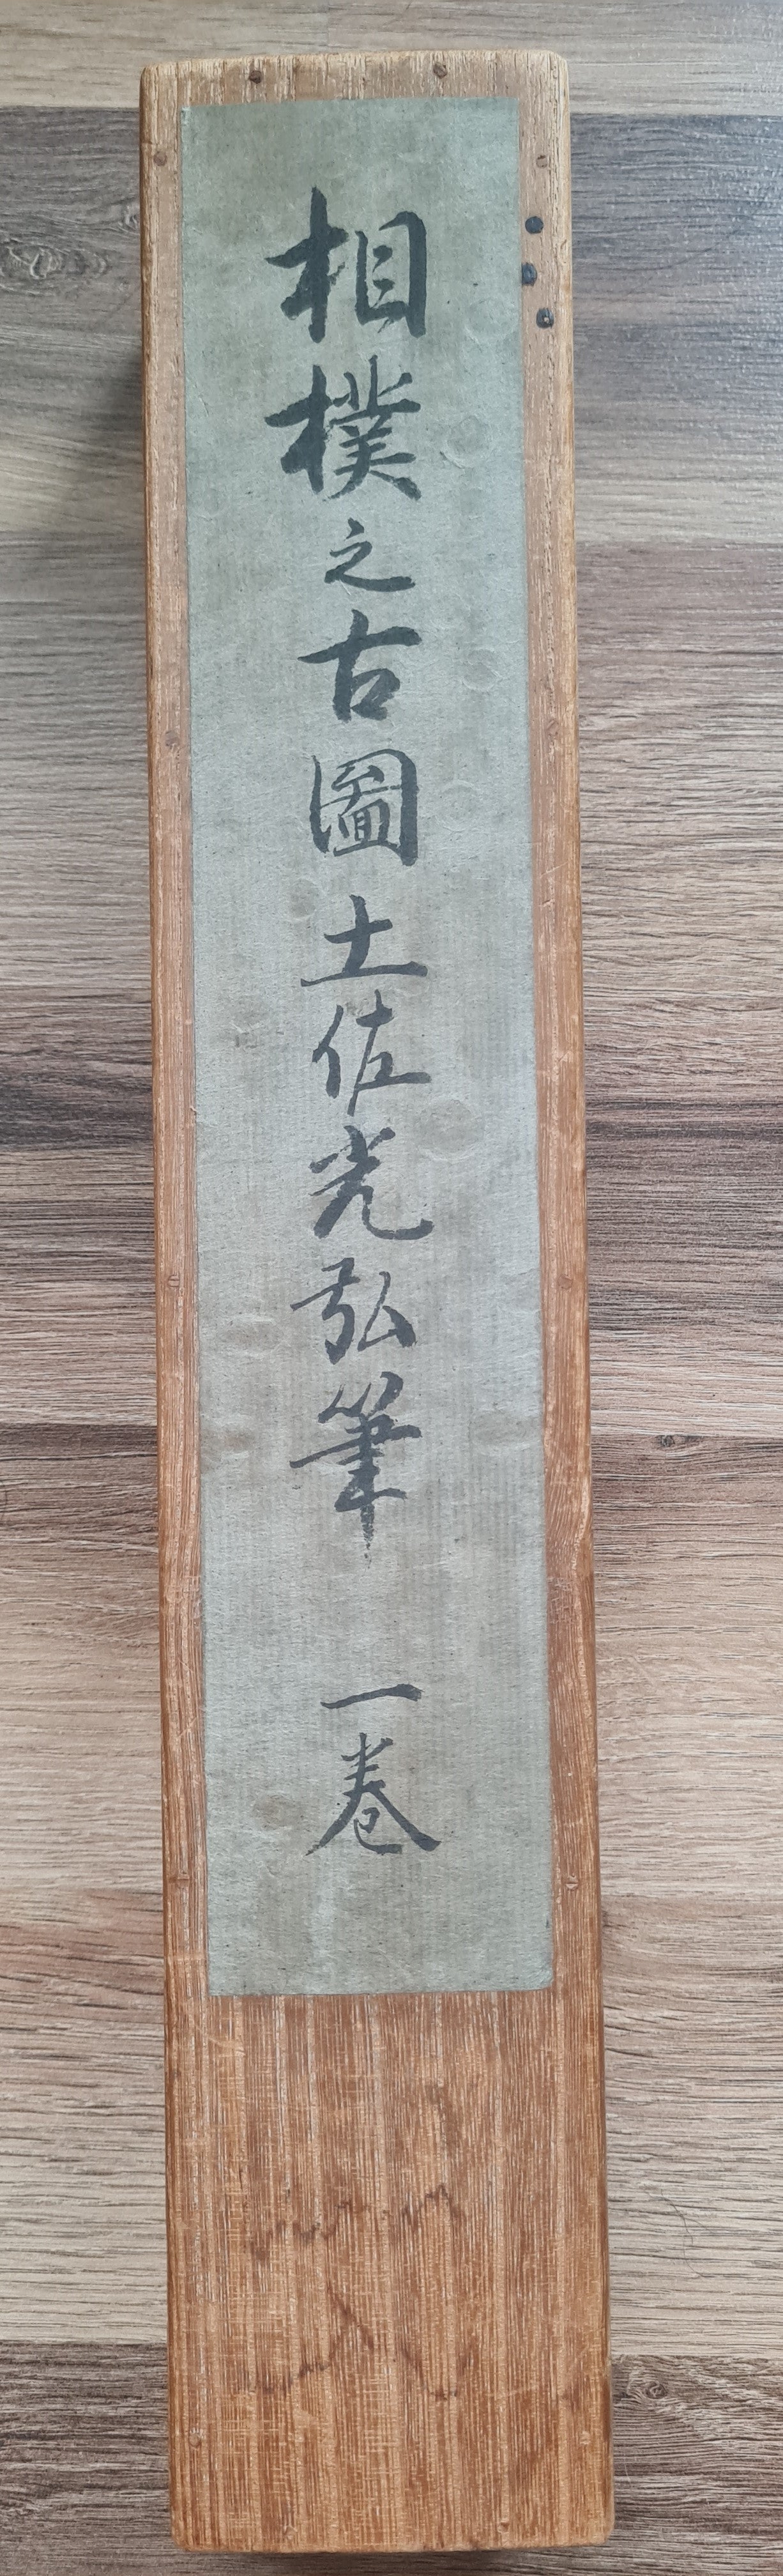 相撲之古圖土佐光弘筆 一卷